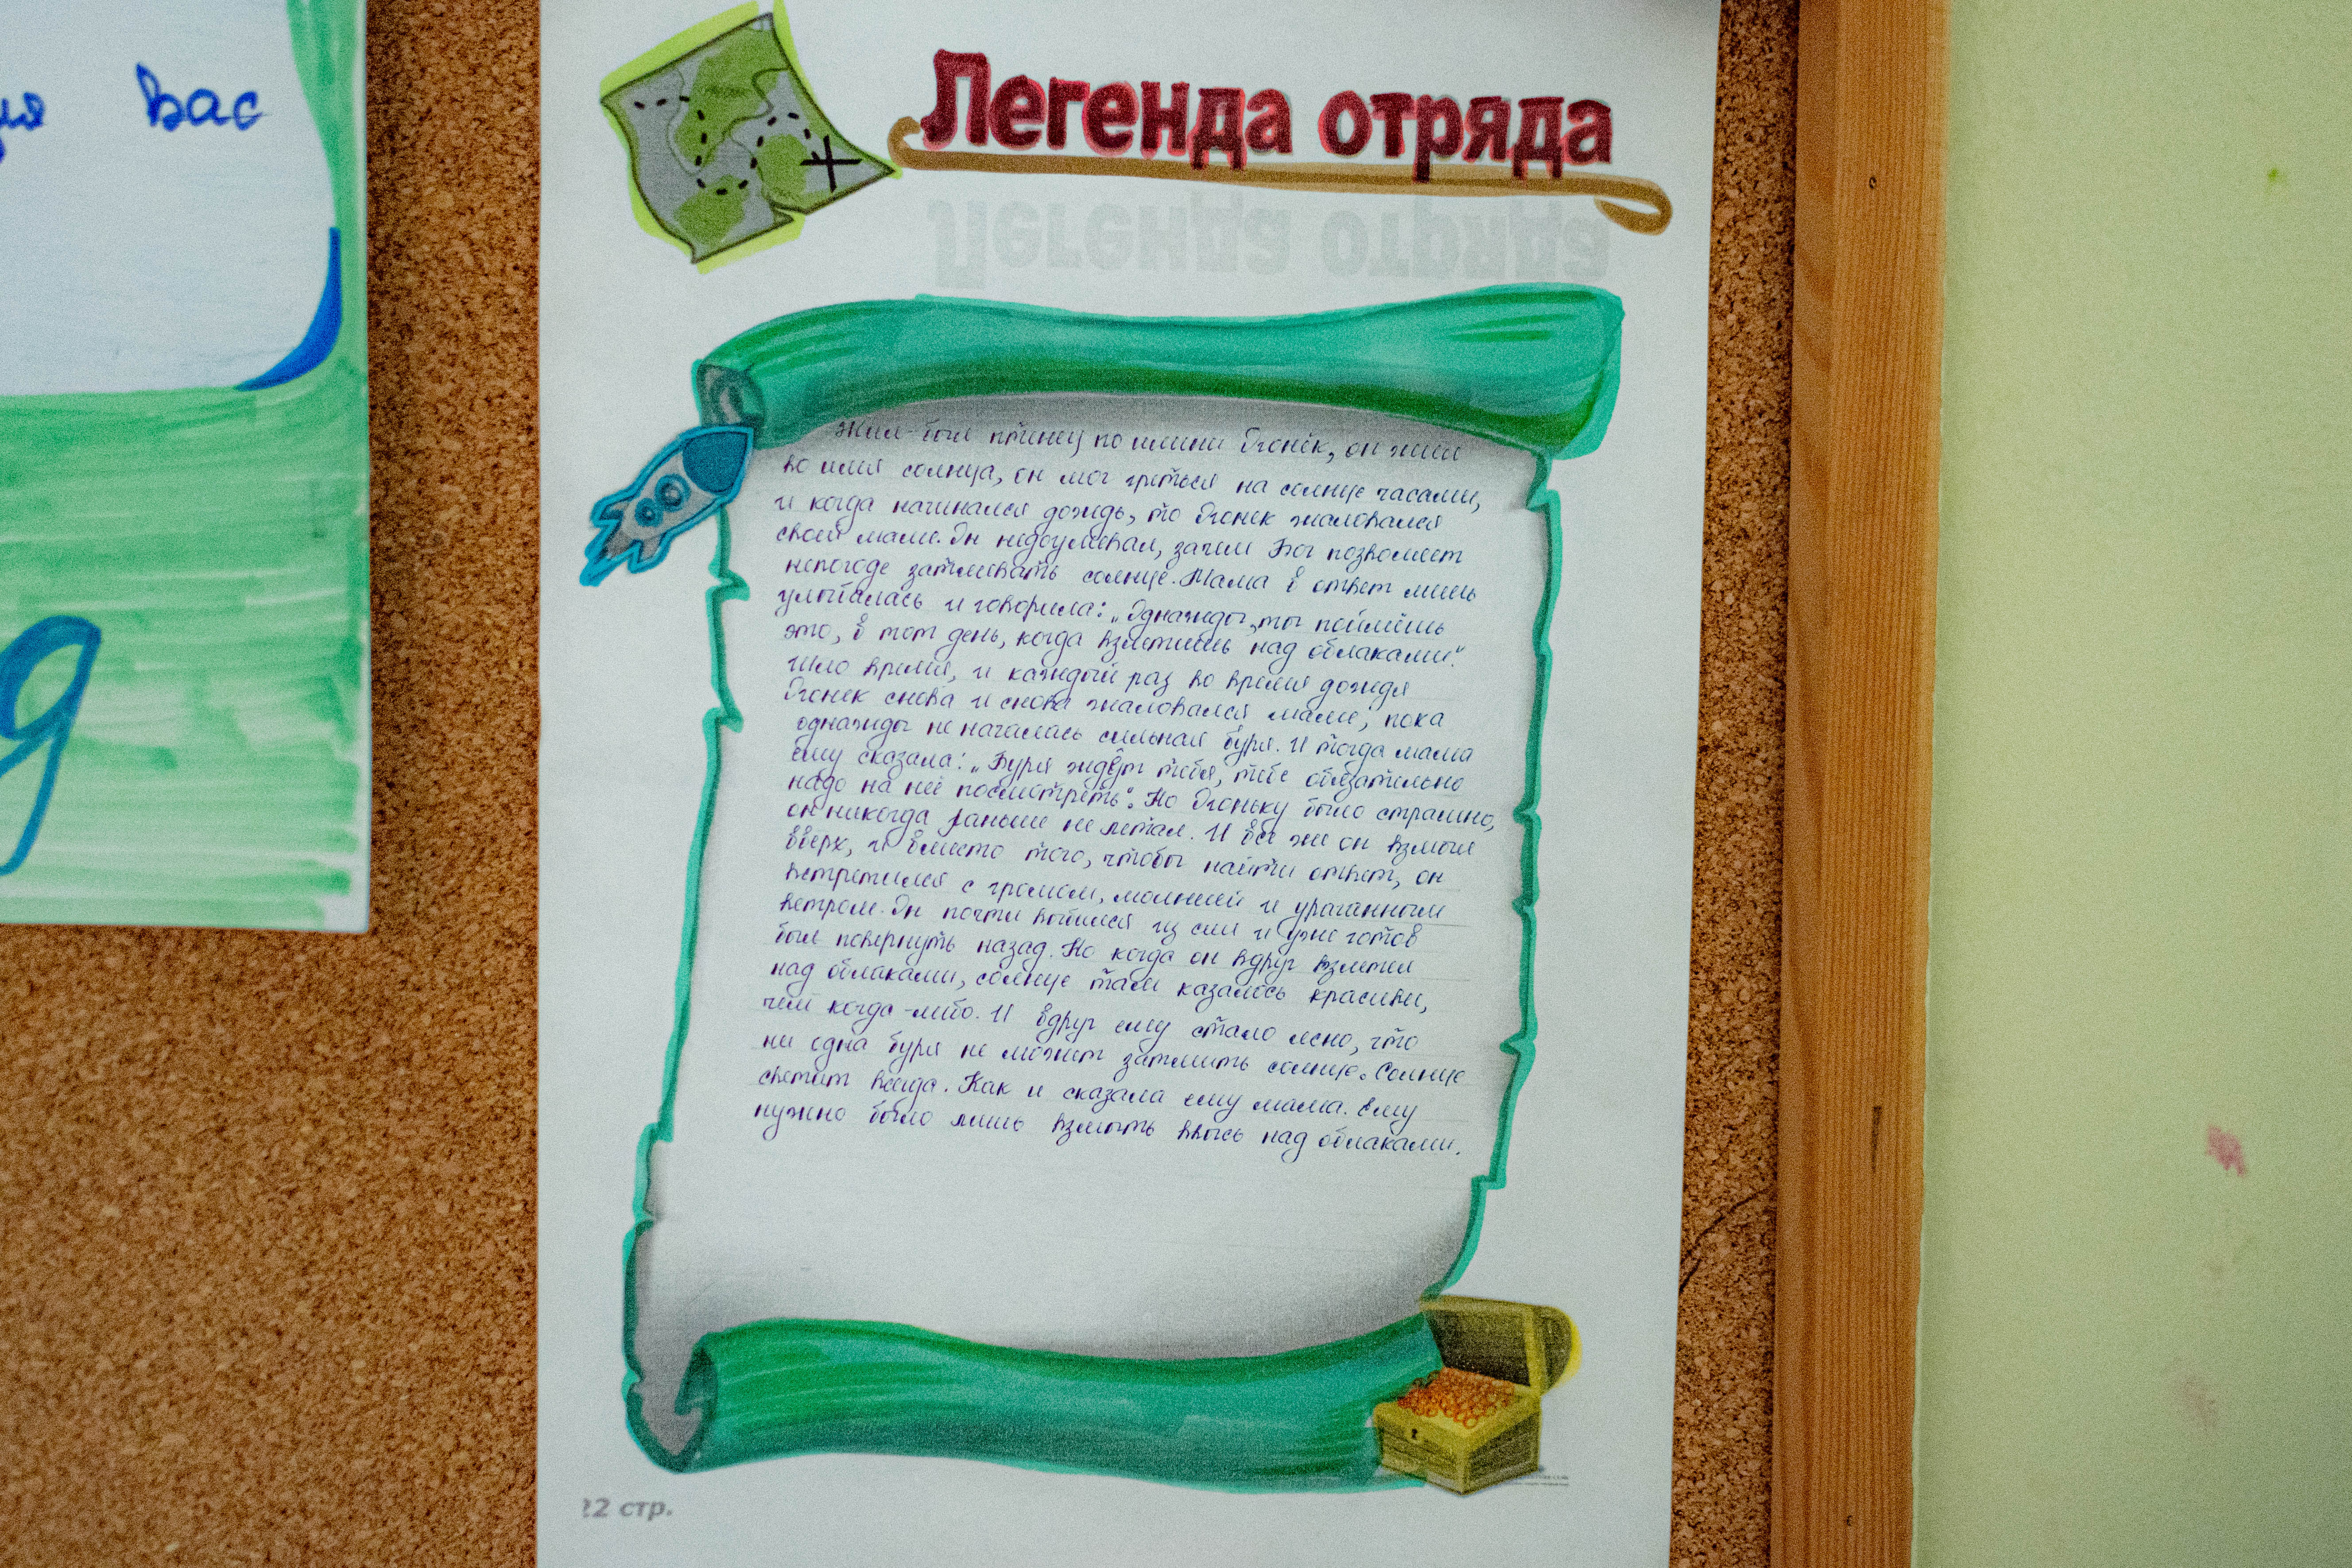 вас
Легенда отряда
Жил-был птенец по имени Огонёк, он жил
во имя солнца, он мог греться на солнце часами,
и когда начинался дождь, то Огонек жаловался
своей маме. Он недоумевал, зачем Бог позволяет
непогоде затмевать солнце. Мама в ответ лишь
улыбалась и говорила: „Однажды, ты поймёшь
это, в тот день, когда взлетишь над облаками“.
Шло время, и каждый раз во время дождя
Огонек снова и снова жаловался маме, пока
однажды не началась сильная буря. И тогда мама
ему сказала: „Буря ждёт тебя, тебе обязательно
надо на неё посмотреть“. Но Огоньку было страшно,
он никогда раньше не летал. И всё же он взмыл
вверх, и вместо того, чтобы найти ответ, он
встретился с громом, молнией и ураганным
ветром. Он почти выбился из сил и уже готов
был повернуть назад. Но когда он вдруг взлетел
над облаками, солнце там казалось красивей,
чем когда-либо. И вдруг ему стало ясно, что
ни одна буря не может затмить солнце. Солнце
светит всегда. Как и сказала ему мама. Ему
нужно было лишь взмыть ввысь над облаками.
22 стр.